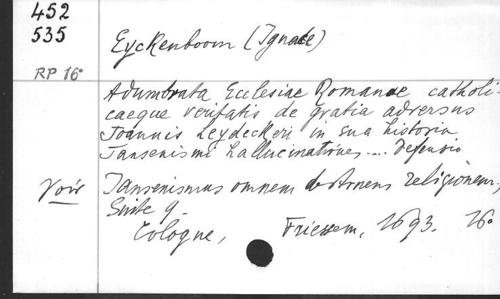 452
535
RP 16°
Eyckenboom (Ignace)
Adumbrata Ecclesiae Romanae catholi-
caeque veritatis de gratia adversus
Joannis Leydeckeri in sua historia
Jansenismi hallucinationes... Defensio
Voir Jansenismus omnem destruens religionem,
Suite 9.
Cologne, Friessem, 1693. 16°